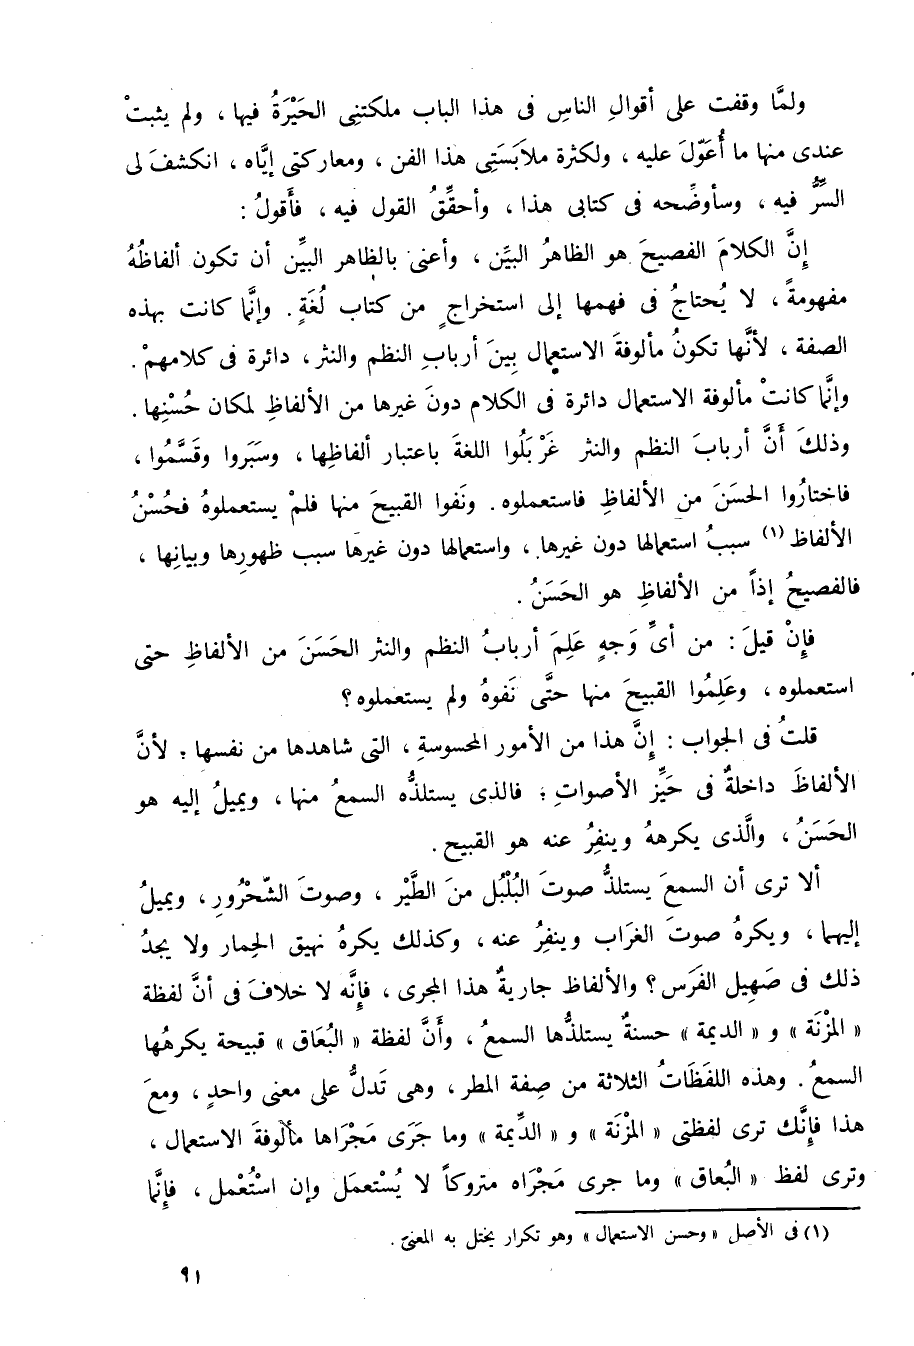 ولمَّا وقفت على أقوالِ الناسِ فى هذا الباب ملكتنى الحَيْرَةُ فيها ، ولم يثبتْ
عندى منها ما أُعَوّلَ عليه ، ولكثرة ملاَبَسَتِى هذا الفن ، ومعاركتى إيَّاه ، انكشفَ لى
السِّرُّ فيه ، وسأوضِّحه فى كتابى هذا ، وأحقِّقُ القول فيه ، فأَقولُ :
إنَّ الكلامَ الفصيحَ هو الظاهرُ البيَّن ، وأعنى بالظاهر البيِّن أن تكون ألفاظُهُ
مفهومةً ، لا يُحتاجُ فى فهمها إلى استخراجٍ من كتاب لُغَةٍ . وإنَّما كانت بهذه
الصفة ، لأنَّها تكونُ مألوفةَ الاستعمال بينَ أربابِ النظم والنثر ، دائرة فى كلامهمْ .
وإنَّما كانتْ مألوفة الاستعمال دائرة فى الكلام دونَ غيرها من الألفاظِ لمكان حُسْنِها .
وذلكَ أَنَّ أربابَ النظم والنثر غَرْبَلُوا اللغةَ باعتبار ألفاظِها ، وسَبَروا وقَسَّمُوا ،
فاختارُوا الحسَنَ من الألفاظِ فاستعملوه . ونَفوا القبيحَ منها فلمْ يستعملوهُ فحُسْنُ
الألفاظ (١) سببُ استعمالها دون غيرها ، واستعمالها دون غيرها سبب ظهورِها وبيانِها ،
فالفصيحُ إذاً من الألفاظِ هو الحَسَنُ .
فإِنْ قيلَ : من أىِّ وَجهٍ عَلِمَ أربابُ النظم والنثر الحَسَنَ من الألفاظِ حتى
استعملوه ، وعَلِمُوا القبيحَ منها حتَّى نَفوهُ ولم يستعملوه ؟
قلتُ فى الجواب : إنَّ هذا من الأمور المحسوسةِ ، التى شاهدها من نفسها ؛ لأنَّ
الألفاظَ داخلةٌ فى حَيِّزِ الأصواتِ ؛ فالذى يستلذّه السمعُ منها ، ويميلُ إليه هو
الحَسَنُ ، والَّذى يكرههُ وينفِرُ عنه هو القبيح .
ألا ترى أن السمعَ يستلذُّ صوتَ البُلْبُل منَ الطَّيْر ، وصوتَ الشّحْرُورِ ، ويميلُ
إليهما ، ويكرهُ صوتَ الغرَاب وينفِرُ عنه ، وكذلك يكرهُ نهيق الحِمار ولا يجدُ
ذلك فى صَهِيل الفَرَس ؟ والألفاظ جاريةٌ هذا المجرى ، فإنَّه لا خلافَ فى أنَّ لفظة
« المزْنَة » و « الديمة » حسنةٌ يستلذُّها السمعُ ، وأَنَّ لفظة « البُعَاق » قبيحة يكرهُها
السمعُ . وهذه اللفَظَاتُ الثلاثة من صِفة المطر ، وهى تَدلُّ على معنى واحدٍ ، ومعَ
هذا فإنَّك ترى لفظتى « المزْنَة » و « الدِّيمة » وما جَرَى مَجْرَاها مألوفةَ الاستعمال ،
وترى لفظ « البُعاق » وما جرى مَجْرَاه متروكاً لا يُسْتعمَل وإن اسْتُعْمل ، فإنَّما
(١) فى الأصل « وحسن الاستعمال » وهو تكرار يختل به المعنى .
٩١